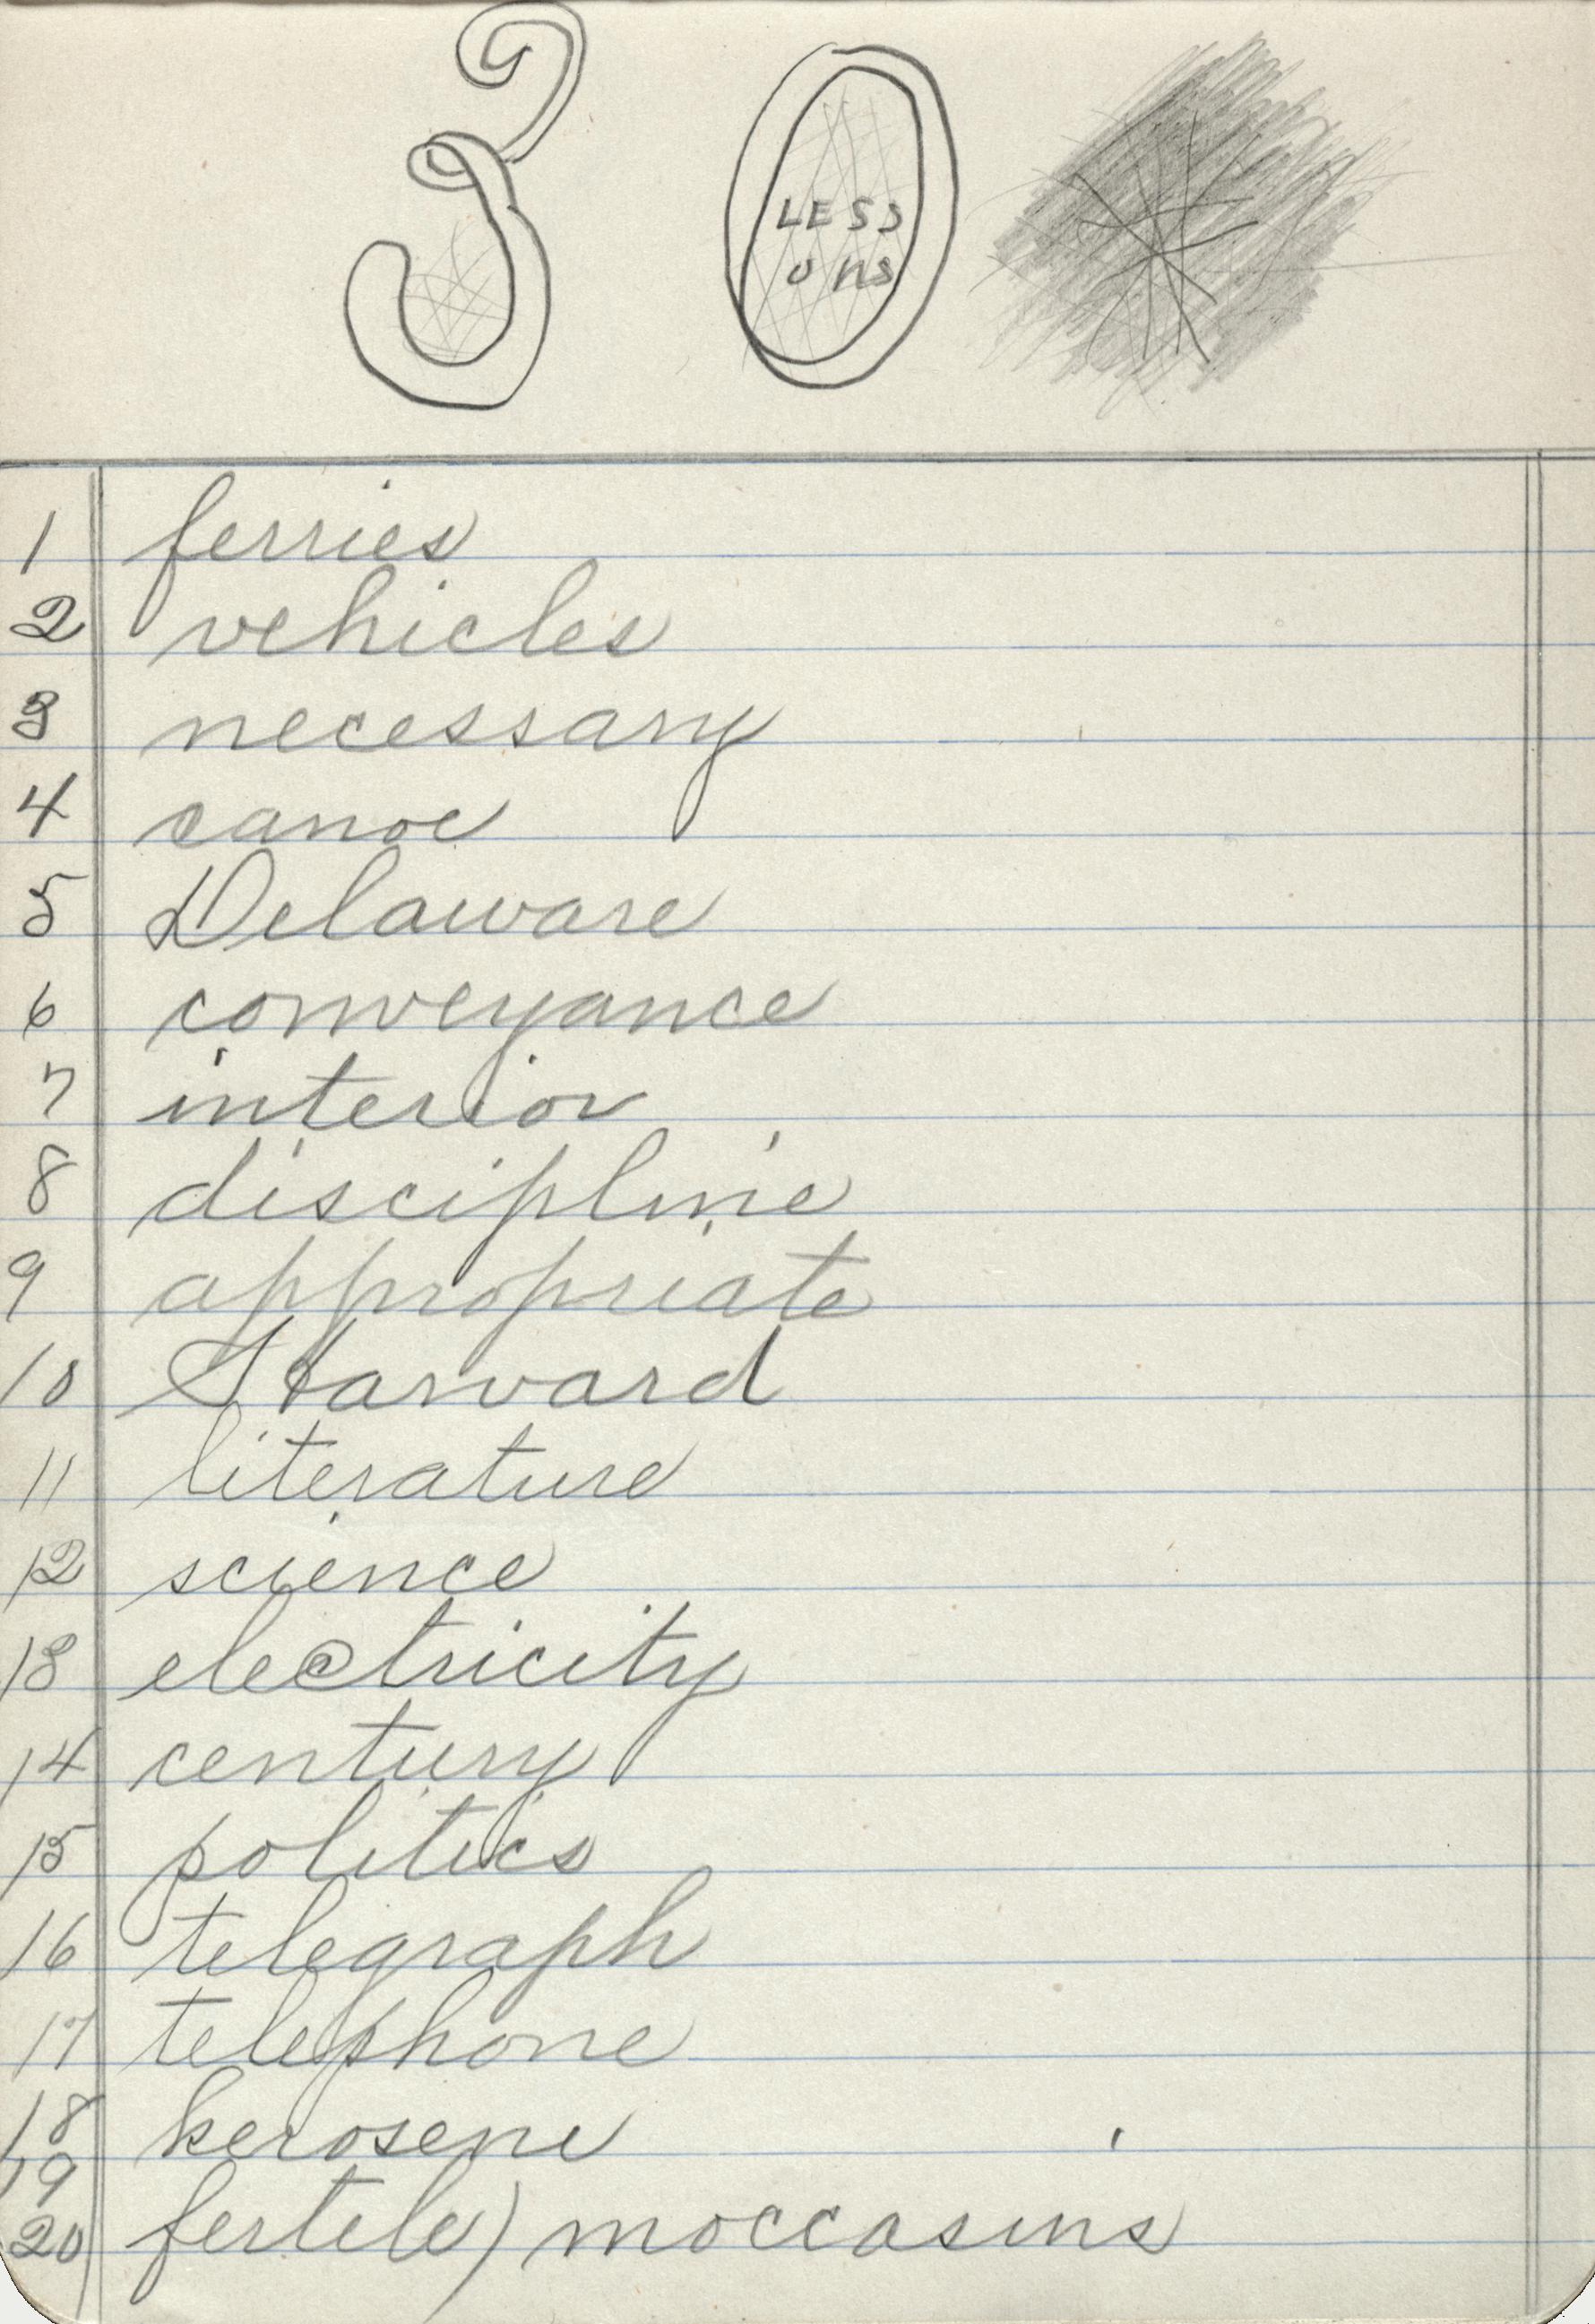 30
LESS
ons
1 ferries
2 vehicles
3 necessary
4 canoe
5 Delaware
6 conveyance
7 interior
8 discipline
9 appropriate
10 Harvard
11 literature
12 science
13 electricity
14 century
15 politics
16 telegraph
17 telephone
18 kerosene
19
20 fertile) moccasins